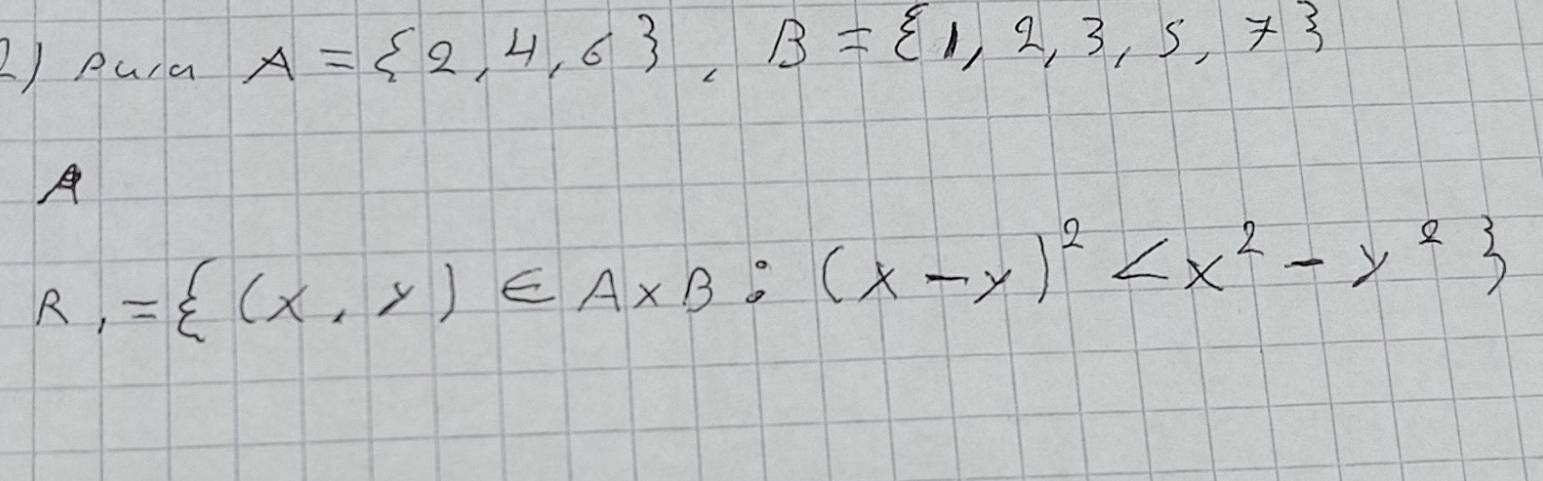 2) para A = {2, 4, 6}, B = {1, 2, 3, 5, 7}
A
R₁ = {(x, y) ∈ A x B : (x - y)² < x² - y²}